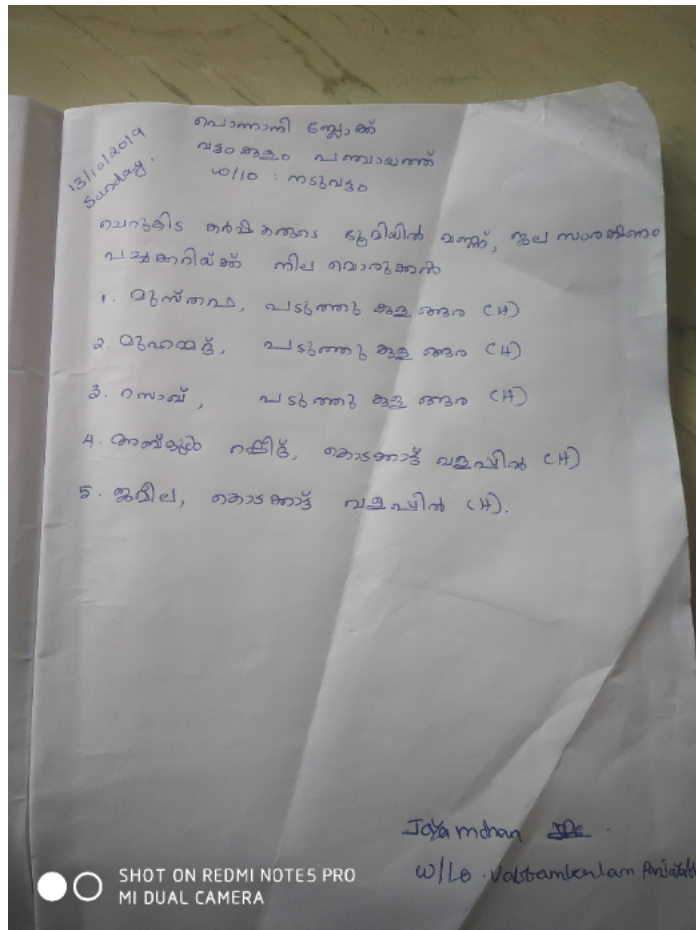 13/10/2019
Sunday.
പൊന്നാനി ബ്ലോക്ക്
വട്ടംകുളം പഞ്ചായത്ത്
വാർഡ് : നടുവട്ടം
ചെറുകിട കർഷകരുടെ ഭൂമിയിൽ മണ്ണ്, ജല സംരക്ഷണം
പച്ചക്കറിയ്ക്ക് നില മൊരുക്കൽ
1. മുസ്തഫ, പടുത്തു കുള ങ്ങര (H)
2. മുഹമ്മദ്, പടുത്തു കുള ങ്ങര (H)
3. റസാഖ്, പടുത്തു കുള ങ്ങര (H)
4. അബ്ദുൾ റഷീദ്, കൊടക്കാട്ട് വളപ്പിൽ (H)
5. ജമീല, കൊടക്കാട്ട് വളപ്പിൽ (H).
Jayamohan
SHOT ON REDMI NOTE5 PRO
MI DUAL CAMERA